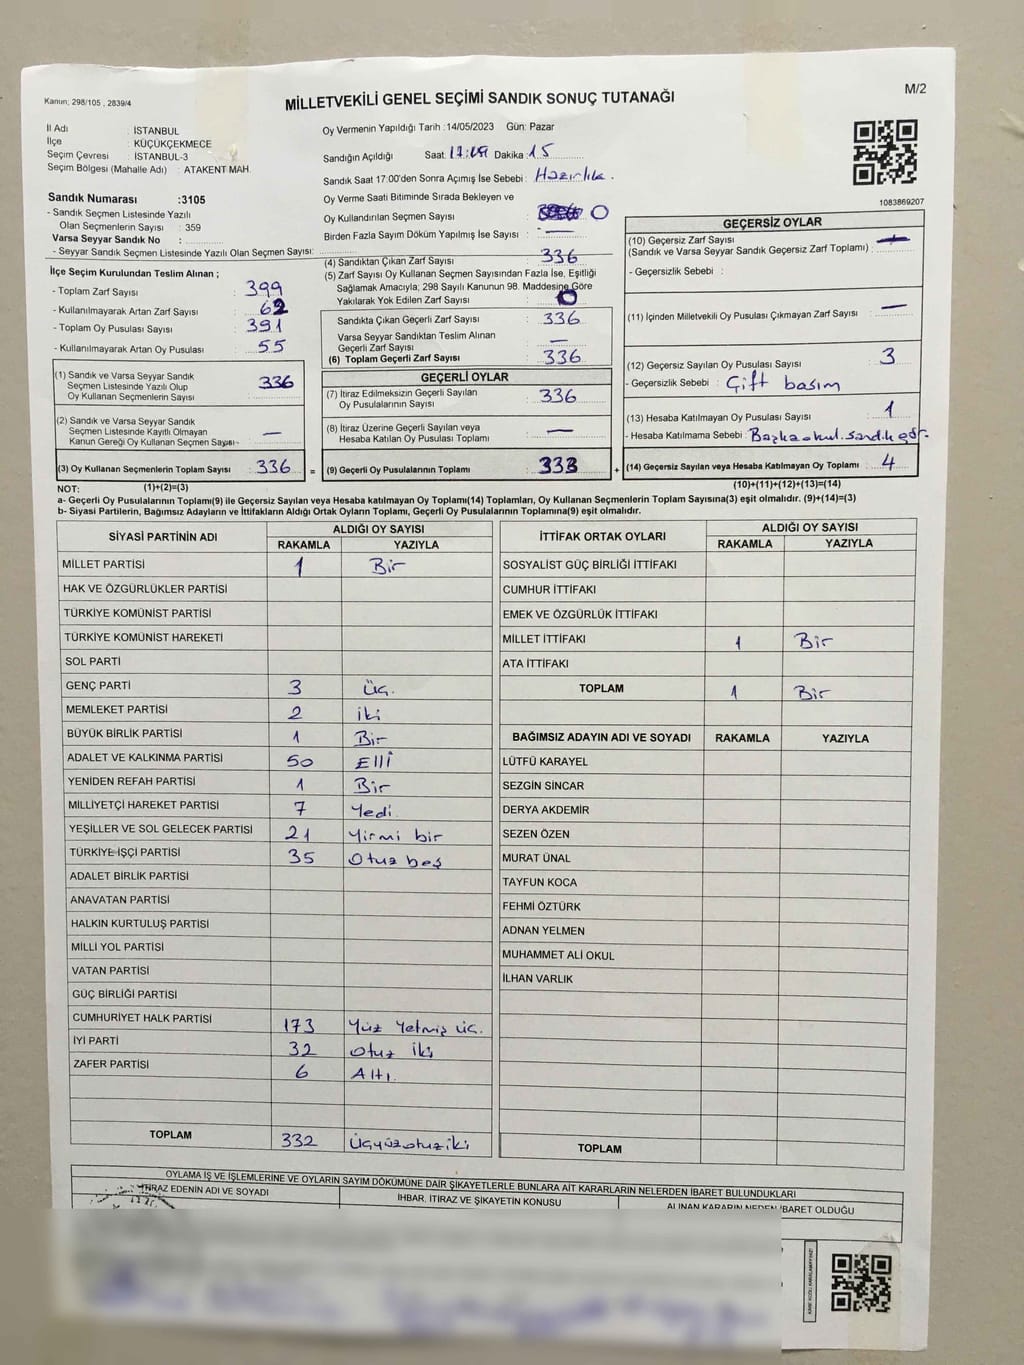 Kanun; 298/105 , 2839/4
MİLLETVEKİLİ GENEL SEÇİMİ SANDIK SONUÇ TUTANAĞI
M/2
İl Adı : İSTANBUL
İlçe : KÜÇÜKÇEKMECE
Seçim Çevresi : İSTANBUL-3
Seçim Bölgesi (Mahalle Adı) : ATAKENT MAH.
Sandık Numarası :3105
- Sandık Seçmen Listesinde Yazılı
Olan Seçmenlerin Sayısı : 359
Varsa Seyyar Sandık No :
- Seyyar Sandık Seçmen Listesinde Yazılı Olan Seçmen Sayısı:
İlçe Seçim Kurulundan Teslim Alınan ;
- Toplam Zarf Sayısı : 399
- Kullanılmayarak Artan Zarf Sayısı : 62
- Toplam Oy Pusulası Sayısı : 391
- Kullanılmayarak Artan Oy Pusulası : 55
(1) Sandık ve Varsa Seyyar Sandık
Seçmen Listesinde Yazılı Olup
Oy Kullanan Seçmenlerin Sayısı : 336
(2) Sandık ve Varsa Seyyar Sandık
Seçmen Listesinde Kayıtlı Olmayan
Kanun Gereği Oy Kullanan Seçmen Sayısı : —
(3) Oy Kullanan Seçmenlerin Toplam Sayısı : 336 =
(1)+(2)=(3)
Oy Vermenin Yapıldığı Tarih :14/05/2023 Gün: Pazar
Sandığın Açıldığı Saat: Dakika : 15
Sandık Saat 17:00'den Sonra Açımış İse Sebebi : Hazırlık.
Oy Verme Saati Bitiminde Sırada Bekleyen ve
Oy Kullandırılan Seçmen Sayısı : 0
Birden Fazla Sayım Döküm Yapılmış İse Sayısı : —
(4) Sandıktan Çıkan Zarf Sayısı : 336
(5) Zarf Sayısı Oy Kullanan Seçmen Sayısından Fazla İse, Eşitliği
Sağlamak Amacıyla; 298 Sayılı Kanunun 98. Maddesine Göre
Yakılarak Yok Edilen Zarf Sayısı : 0
Sandıkta Çıkan Geçerli Zarf Sayısı : 336
Varsa Seyyar Sandıktan Teslim Alınan
Geçerli Zarf Sayısı : —
(6) Toplam Geçerli Zarf Sayısı : 336
GEÇERLİ OYLAR
(7) İtiraz Edilmeksizin Geçerli Sayılan
Oy Pusulalarının Sayısı : 336
(8) İtiraz Üzerine Geçerli Sayılan veya
Hesaba Katılan Oy Pusulası Toplamı : —
(9) Geçerli Oy Pusulalarının Toplamı : 333 +
1083869207
GEÇERSİZ OYLAR
(10) Geçersiz Zarf Sayısı
(Sandık ve Varsa Seyyar Sandık Geçersiz Zarf Toplamı) : —
- Geçersizlik Sebebi :
(11) İçinden Milletvekili Oy Pusulası Çıkmayan Zarf Sayısı : —
(12) Geçersiz Sayılan Oy Pusulası Sayısı : 3
- Geçersizlik Sebebi : Çift basım
(13) Hesaba Katılmayan Oy Pusulası Sayısı : 1
- Hesaba Katılmama Sebebi : Başka okul.sandık
(14) Geçersiz Sayılan veya Hesaba Katılmayan Oy Toplamı : 4
(10)+(11)+(12)+(13)=(14)
NOT:
a- Geçerli Oy Pusulalarının Toplamı(9) ile Geçersiz Sayılan veya Hesaba katılmayan Oy Toplamı(14) Toplamları, Oy Kullanan Seçmenlerin Toplam Sayısına(3) eşit olmalıdır. (9)+(14)=(3)
b- Siyasi Partilerin, Bağımsız Adayların ve İttifakların Aldığı Ortak Oyların Toplamı, Geçerli Oy Pusulalarının Toplamına(9) eşit olmalıdır.
SİYASİ PARTİNİN ADI ALDIĞI OY SAYISI
RAKAMLA YAZIYLA
MİLLET PARTİSİ 1 Bir
HAK VE ÖZGÜRLÜKLER PARTİSİ
TÜRKİYE KOMÜNİST PARTİSİ
TÜRKİYE KOMÜNİST HAREKETİ
SOL PARTİ
GENÇ PARTİ 3 Üç.
MEMLEKET PARTİSİ 2 iki
BÜYÜK BİRLİK PARTİSİ 1 Bir
ADALET VE KALKINMA PARTİSİ 50 Elli
YENİDEN REFAH PARTİSİ 1 Bir
MİLLİYETÇİ HAREKET PARTİSİ 7 Yedi.
YEŞİLLER VE SOL GELECEK PARTİSİ 21 Yirmi bir
TÜRKİYE İŞÇİ PARTİSİ 35 Otuz beş
ADALET BİRLİK PARTİSİ
ANAVATAN PARTİSİ
HALKIN KURTULUŞ PARTİSİ
MİLLİ YOL PARTİSİ
VATAN PARTİSİ
GÜÇ BİRLİĞİ PARTİSİ
CUMHURİYET HALK PARTİSİ 173 Yüz Yetmiş üç.
İYİ PARTİ 32 Otuz iki
ZAFER PARTİSİ 6 Altı.
TOPLAM 332 Üçyüzotuziki
İTTİFAK ORTAK OYLARI ALDIĞI OY SAYISI
RAKAMLA YAZIYLA
SOSYALİST GÜÇ BİRLİĞİ İTTİFAKI
CUMHUR İTTİFAKI
EMEK VE ÖZGÜRLÜK İTTİFAKI
MİLLET İTTİFAKI 1 Bir
ATA İTTİFAKI
TOPLAM 1 Bir
BAĞIMSIZ ADAYIN ADI VE SOYADI RAKAMLA YAZIYLA
LÜTFÜ KARAYEL
SEZGİN SİNCAR
DERYA AKDEMİR
SEZEN ÖZEN
MURAT ÜNAL
TAYFUN KOCA
FEHMİ ÖZTÜRK
ADNAN YELMEN
MUHAMMET ALİ OKUL
İLHAN VARLIK
TOPLAM
OYLAMA İŞ VE İŞLEMLERİNE VE OYLARIN SAYIM DÖKÜMÜNE DAİR ŞİKAYETLERLE BUNLARA AİT KARARLARIN NELERDEN İBARET BULUNDUKLARI
İTİRAZ EDENİN ADI VE SOYADI İHBAR, İTİRAZ VE ŞİKAYETİN KONUSU ALINAN KARARIN NEDEN İBARET OLDUĞU